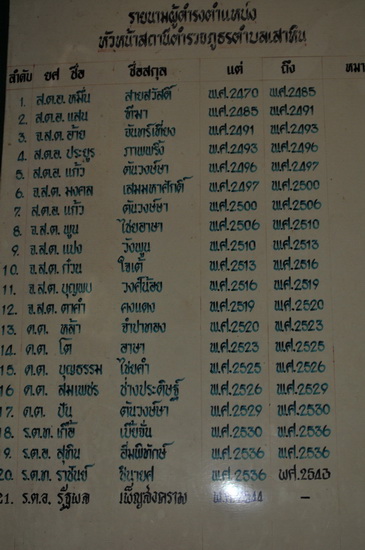 รายนามผู้ดำรงตำแหน่ง
หัวหน้าสถานีตำรวจภูธรตำบลเสาหิน
ลำดับ ยศ ชื่อ ชื่อสกุล แต่ ถึง หมา
1. ส.ต.อ. หมื่น สายสวัสดิ์ พ.ศ.2470 พ.ศ.2485
2. ส.ต.อ. แสน ทีมา พ.ศ.2485 พ.ศ.2491
3. จ.ส.ต. อ้าย จันทร์เที่ยง พ.ศ.2491 พ.ศ.2493
4. ส.ต.อ. ประยูร ภาพพริ้ง พ.ศ.2493 พ.ศ.2496
5. ส.ต.อ. แก้ว ตันวงษ์ษา พ.ศ.2496 พ.ศ.2497
6. จ.ส.ต. มงคล เสมมหาศักดิ์ พ.ศ.2497 พ.ศ.2500
7. ส.ต.อ. แก้ว ตันวงษ์ษา พ.ศ.2500 พ.ศ.2506
8. จ.ส.ต. พูน ไชยอาษา พ.ศ.2506 พ.ศ.2510
9. จ.ส.ต. แปง วังพูน พ.ศ.2510 พ.ศ.2513
10. จ.ส.ต. ก๋วน ใจเต้ พ.ศ.2513 พ.ศ.2516
11. จ.ส.ต. บุญพบ วงศ์น้อย พ.ศ.2516 พ.ศ.2519
12. จ.ส.ต. ตาคำ คงแดง พ.ศ.2519 พ.ศ.2520
13. ด.ต. หล้า จำปาทอง พ.ศ.2520 พ.ศ.2523
14. ด.ต. โต อาษา พ.ศ.2523 พ.ศ.2525
15. ด.ต. บุญธรรม ไชยคำ พ.ศ.2525 พ.ศ.2526
16 ด.ต. สมเพชร ช่างประดิษฐ์ พ.ศ.2526 พ.ศ.2529
17. ด.ต. ปัน ตันวงษ์ษา พ.ศ.2529 พ.ศ.2530
18. ร.ต.ท. เกื้อ เบี้ยชั่น พ.ศ.2530 พ.ศ.2536
19. ร.ต.อ. สุทิน อิ่มพิทักษ์ พ.ศ.2536 พ.ศ.2536
20. ร.ต.ท. ราชันย์ ชินายศ พ.ศ.2536 พ.ศ.2543
21. ร.ต.อ. รัฐพล เพ็ญสงคราม พ.ศ.2544 –